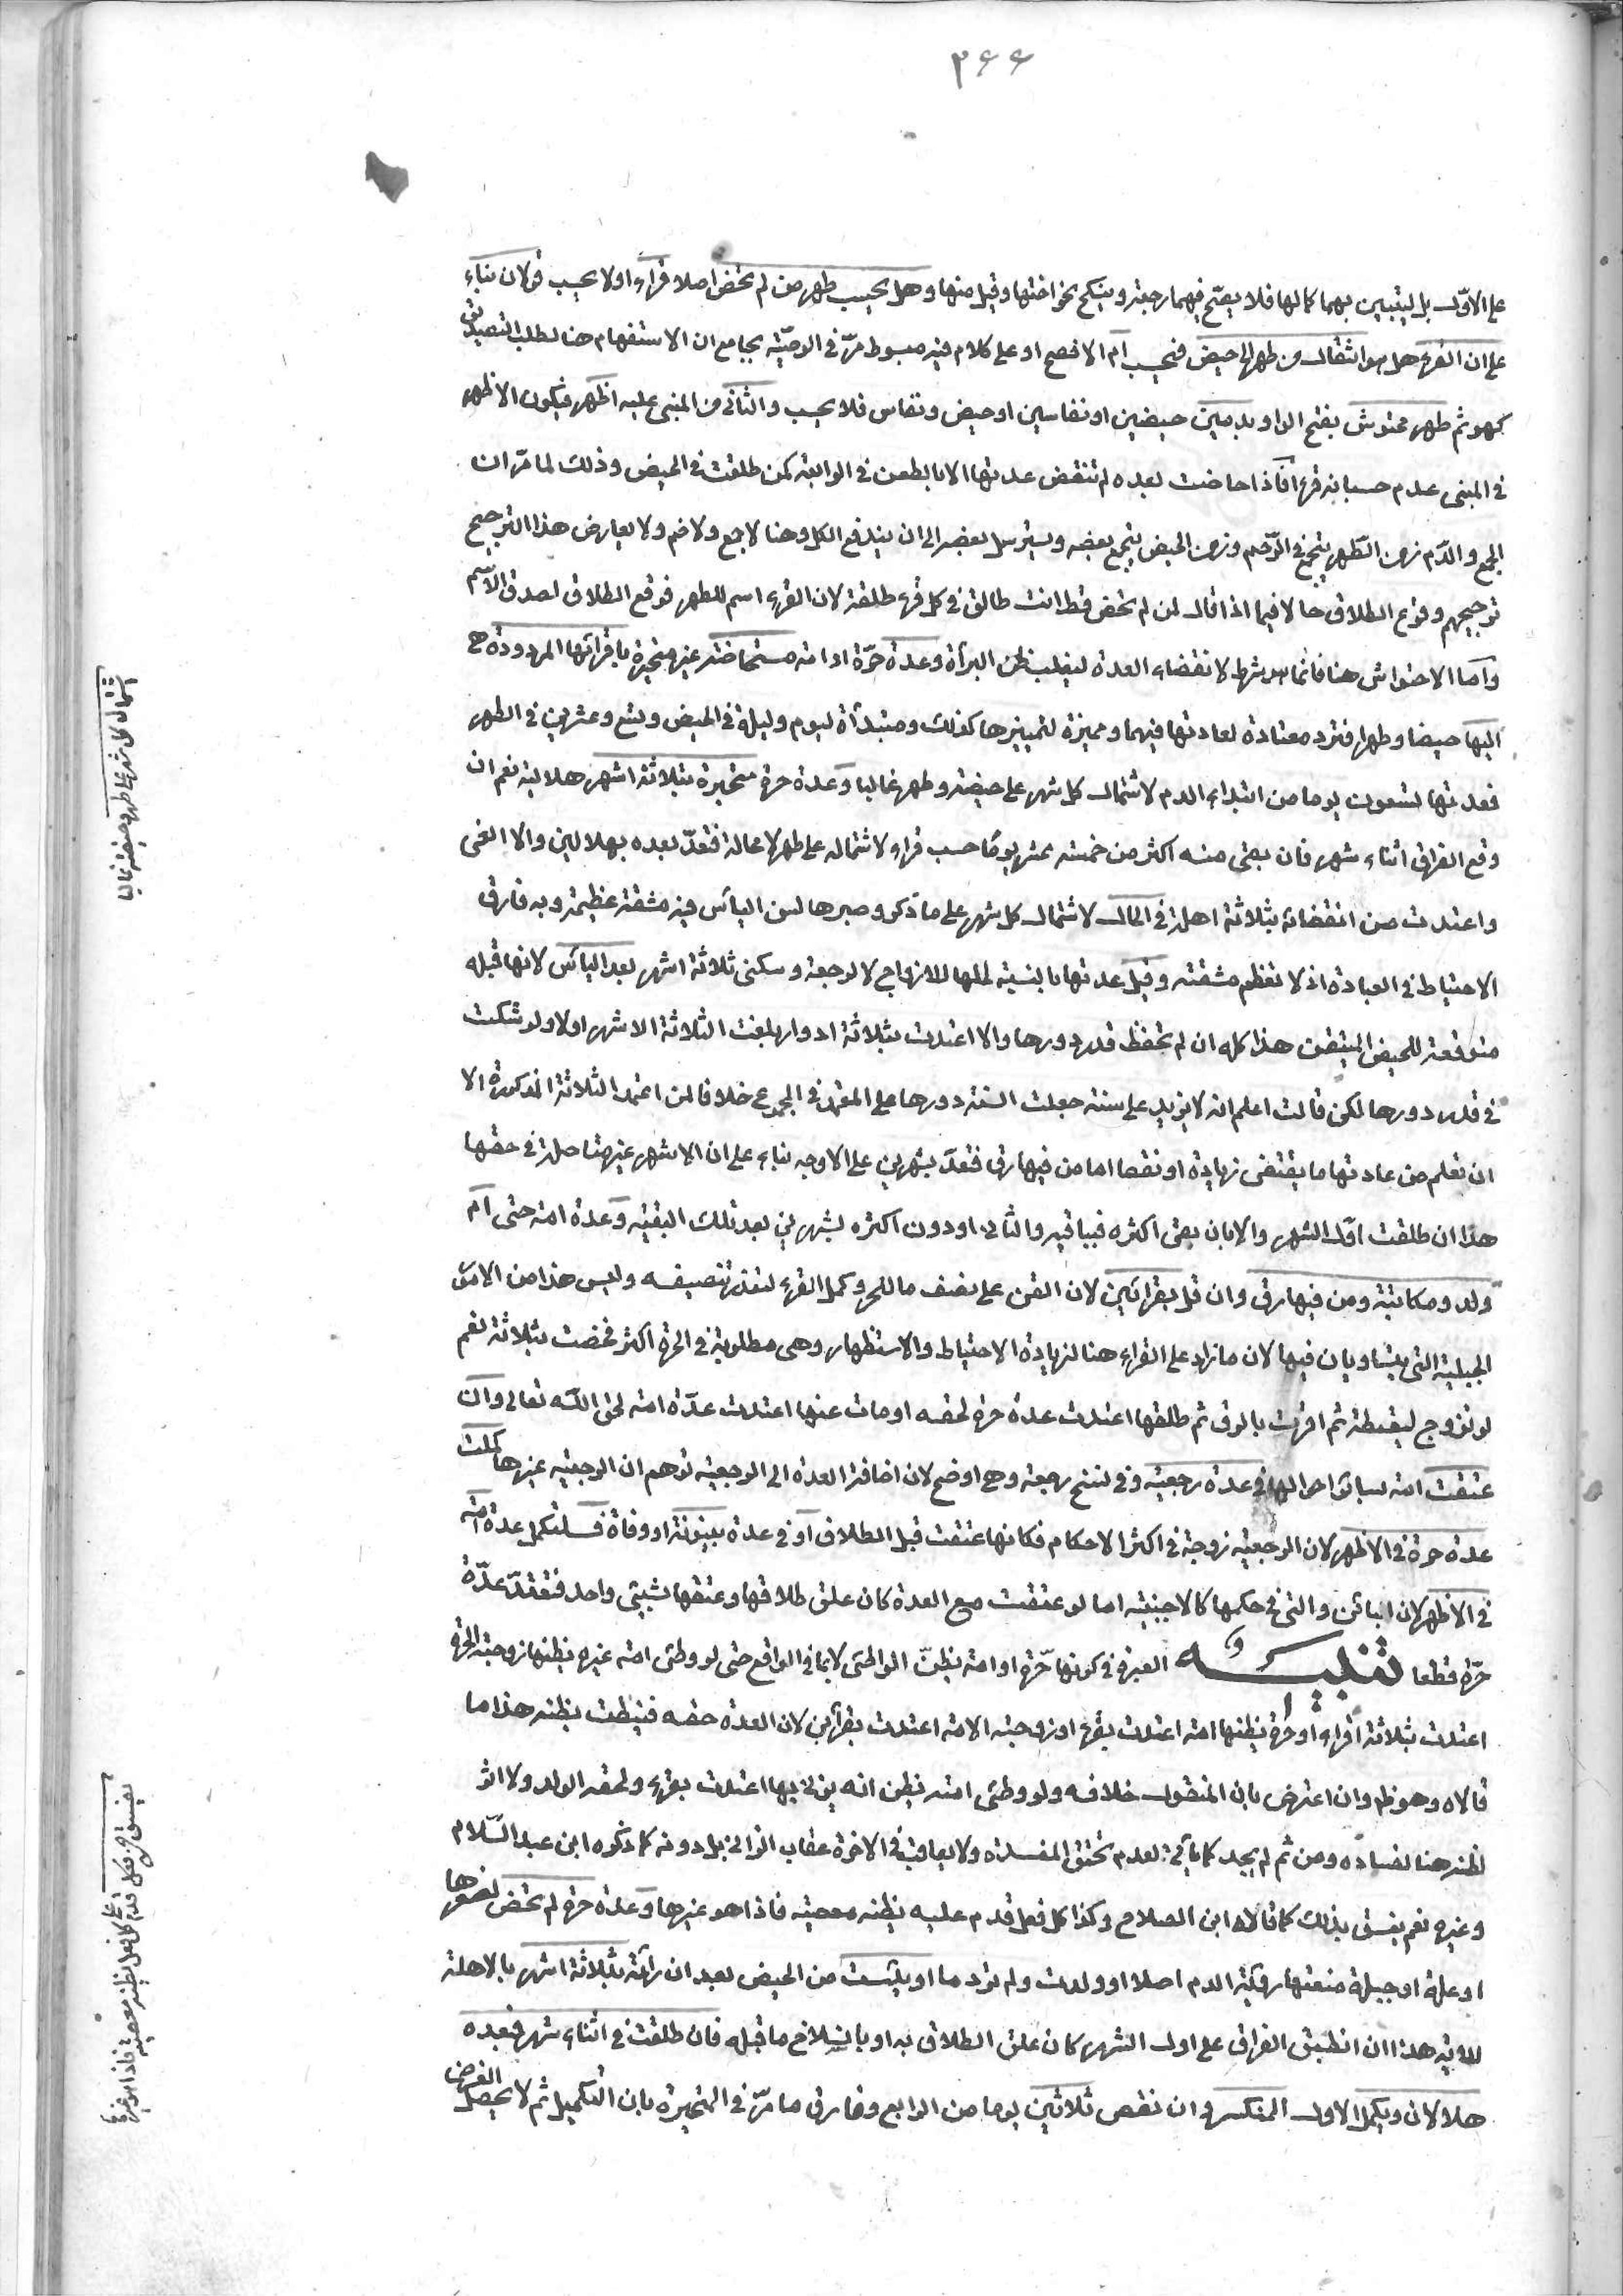 ٣٤٤
على الاوّل بل ليتبين بهما كمالها فلا يصحّ فيهما رجعة وينكح نحو اختها وقيل منها وهل يحسب طهر من لم تحض اصلا قراء اولا يحسب قولان بناء
على ان القرء هل هو انتقال من طهر الى حيض فيحسب ام الافصح او على كلام فيه مبسوط مرّ في الوصيّة بجامع ان الاستفهام هنا لطلب التصديق
كهو ثم طهر محتوش بفتح الواو بدمين حيضين او نفاسين او حيض ونفاس فلا يحسب والثاني من المبنى عليه اظهر فيكون الاظهر
في المبنى عدم حسبانه قرءا فاذا حاضت بعده لم تنقض عدتها الا بالطعن في الرابعة كمن طلقت في الحيض وذلك لما مرّ ان
الجمع والدّم زمن الطّهر يتجمع في الرّحم وزمن الحيض يتجمع بعضه ويسترسل بعضه الى ان يندفع الكل وهنا لا جمع ولا ضم ولا يعارض هذا الترجيح
ترجيحهم وقوع الطلاق حالا فيما اذا قال لمن لم تحض قط انت طالق في كل قرء طلقة لان القرء اسم للطهر فوقع الطلاق لصدق الاسم
واما الاحتواش هنا فانما هو شرط لانقضاء العدة ليغلب ظن البرآة وعدة حرّة او امة مستحاضة غير متحيرة باقرائها المردودة هي
اليها حيضا وطهرا فترد معتادة لعادتها فيهما ومميزة لتمييزها كذلك ومبتدأة ليوم وليلة في الحيض وتسع وعشرين في الطهر
فعدتها تسعون يوما من ابتداء الدم لاشتمال كل شهر على حيضة وطهر غالبا وعدة حرة متحيرة بثلاثة اشهر هلالية نعم ان
وقع الفراق اثناء شهر فان بقي منه اكثر من خمسة عشر يوما حسب قراء لاشتماله على طهر لا محالة فتعتدّ بعده بهلالين والا الغى
واعتدت من انقضائه بثلاثة اهلة في الحال لاشتمال كل شهر على ما ذكر وصبرها لسن الياس فيه مشقة عظيمة وبه فارق
الاحتياط في العبادة اذ لا تعظم مشقته وقيل عدتها بالنسبة لحلها للازواج لا لرجعة وسكنى ثلاثة اشهر بعد الياس لانها قبله
متوقعة للحيض المتيقن هذا كله ان لم تحفظ قدر دورها والا اعتدت بثلاثة ادوار بلغت الثلاثة الاشهر اولا ولو شكت
في قدر دورها لكن قالت اعلم انه لا يزيد على سنة جعلت السنة دورها على المعتمد في المجموع خلافا لمن اعتمد الثلاثة المذكورة الا
ان تعلم من عادتها ما يقتضى زيادة او نقصا اما من فيها رق فتعتدّ بشهرين على الاوجه بناء على ان الاشهر غير متاصلة في حقها
هذا ان طلقت اوّل الشهر والا بان بقى اكثره فبباقيه والثاني او دون اكثره بشهرين بعد تلك البقية وعدة امة حتى ام
ولد ومكاتبة ومن فيها رق وان قل بقرائين لان القن على نصف ما للحر وكمل القرء لتعذر تنصيفه وليس هذا من الامور
الجبلية التى يتساويان فيها لان ما زاد على القراء هنا لزيادة الاحتياط والاستظهار وهى مطلوبة في الحرة اكثر فخصت بثلاثة نعم
لو تزوج لقيطة ثم اقرت بالرق ثم طلقها اعتدت عدة حرة لحقه او مات عنها اعتدت عدّة امة لحق الله تعالى وان
عتقت امة بسائر احوالها في عدة رجعية وفي نسخ رجعة وهي اوضح لان اضافة العدة الى الرجعية توهم ان الرجعية غيرها كملت
عدة حرة في الاظهر لان الرجعية زوجة في اكثر الاحكام فكانها عتقت قبل الطلاق او في عدة بينونة او وفاة فلتكمل عدة امة
في الاظهر لان البائن والتى في حكمها كالاجنبية اما لو عتقت مع العدة كان علق طلاقها وعتقها بشيء واحد فتعتدّ عدّة
حرّة قطعا تنبيه العبرة في كونها حّرة او امة بظنّ الواطئ لا بما في الواقع حتى لو وطئ امة غيره يظنها زوجته الحرة
اعتدت بثلاثة اقراء او حرة يظنها امته اعتدت بقرء او زوجته الامة اعتدت بقرأين لان العدة حقه فنيطت بظنه هذا ما
قالاه وهو ظم وان اعترض بان المنقول خلافه ولو وطئ امته يظن انه يزني بها اعتدت بقرء ولحقه الولد ولا اثر
لظنه هنا لفساده ومن ثم لم يحد كما يأتي لعدم تحقق المفسدة ولا يعاقب في الاخرة عقاب الزاني بل دونه كما ذكره ابن عبد السّلام
وغيره نعم يفسق بذلك كما قالاه ابن الصلاح وكذا كل فعل قدم عليه يظنه معصية فاذا هو غيرها وعدة حرة لم تحض لصغرها
او علة او جبلة منعتها رؤية الدم اصلا او ولدت ولم تر دما او يئست من الحيض بعد ان رأته بثلاثة اشهر بالاهلة
للاية هذا ان انطبق الفراق على اول الشهر كان علق الطلاق به او بانسلاخ ما قبله فان طلقت في اثناء شهر فبعده
هلالان ويكمل الاول المنكسر وان نقص ثلاثين يوما من الرابع وفارق ما مرّ في المتحيرة بان التكميل ثم لا يحصل الغرض
اشتمال كل شهر على طهر وحيضة غالبا
يفسق من فعل قدم على كل فعل يظنه معصية فاذا هو غيرها